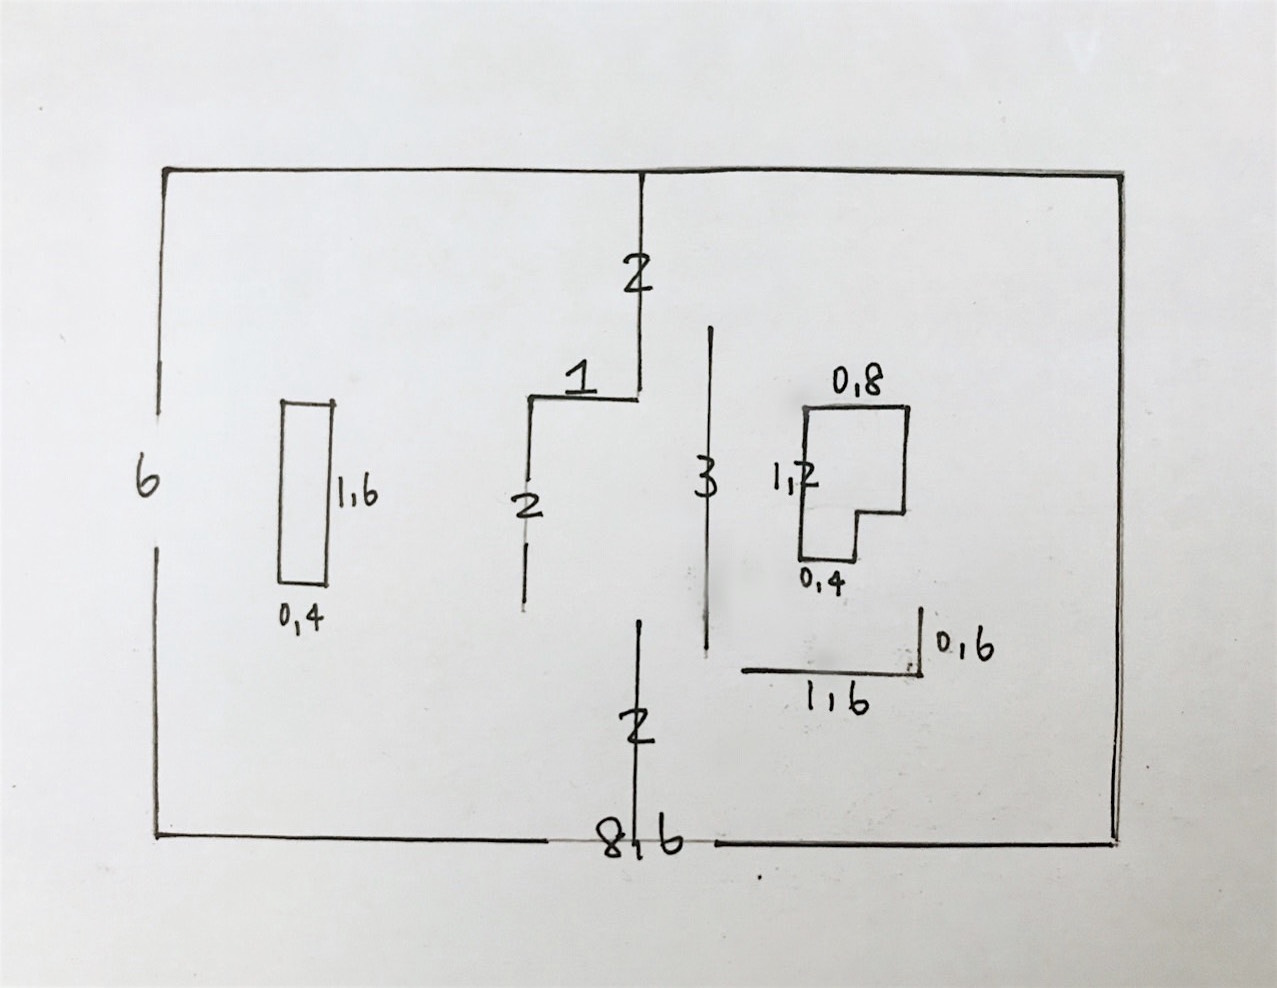 2
1
0,8
6
1,6
2
3
1,2
0,4
0,4
0,6
1,6
2
8,6